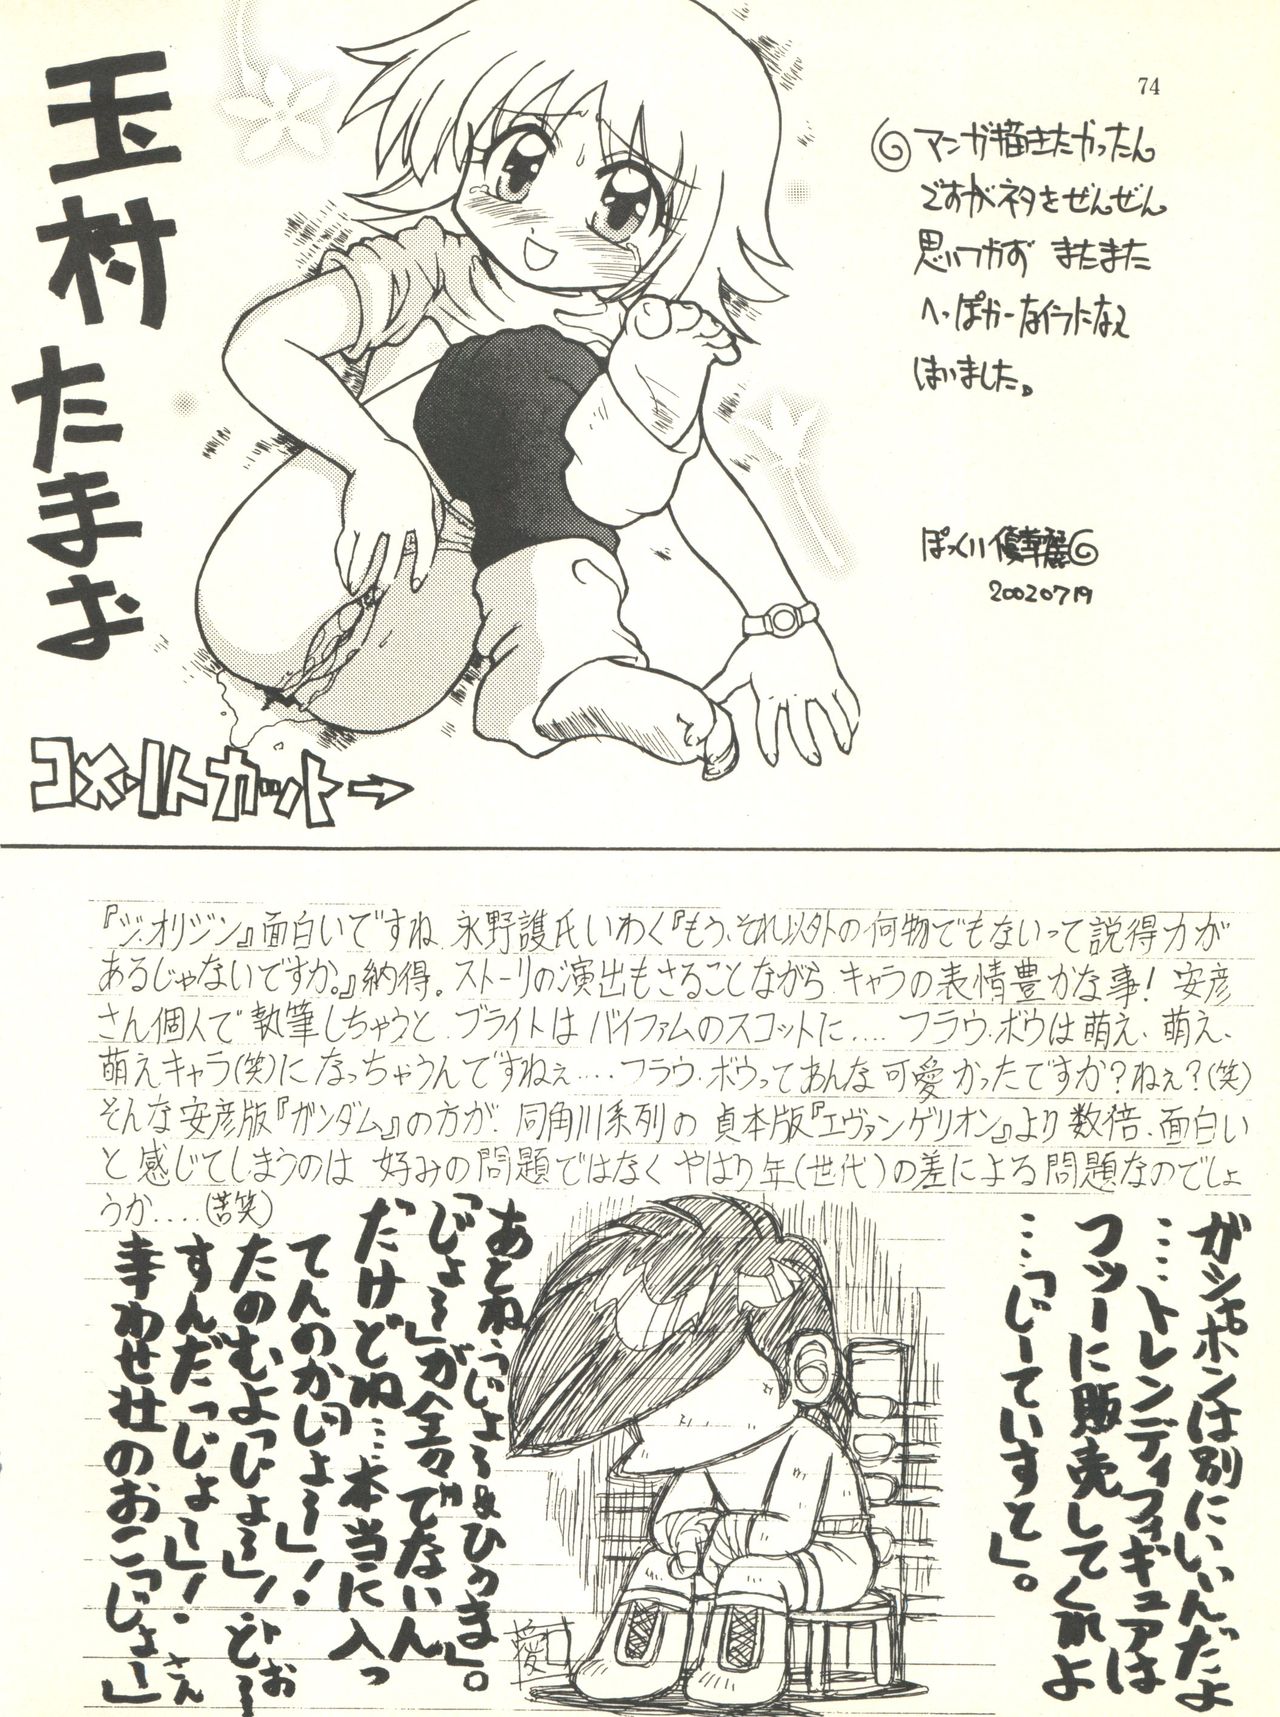 74
玉村たまお
マンガ描きたかったん
ですがネタをぜんぜん
思いつかず またまた
へっぽかーなイラになって
しまいました。
20020719
コメントカット→
『ジ・オリジン』面白いですね 永野護氏いわく『もう、それ以外の何物でもないって説得力が
あるじゃないですか。』納得。ストーリの演出もさることながら キャラの表情豊かな事！ 安彦
さん個人で執筆しちゃうと ブライトはバイファムのスコットに.... フラウ・ボウは萌え、萌え、
萌えキャラ(笑)になっちゃうんですねぇ... フラウ・ボウってあんな可愛かったですか？ねぇ？(笑)
そんな安彦版『ガンダム』の方が 同角川系列の 貞本版『エヴァンゲリオン』より数倍、面白い
と感じてしまうのは 好みの問題ではなく やはり年(世代)の差による問題なのでしょ
うか....(苦笑)
ガシャポンは別にいいんだよ
……トレンディフィギュアは
フツーに販売してくれよ
……「じーていすと」。
あとね、
が全々でてないん
だけどね……本当に入っ
てんのか
たのむよ
すんだっじょー」！
幸わせ荘のおこじょー」
愛